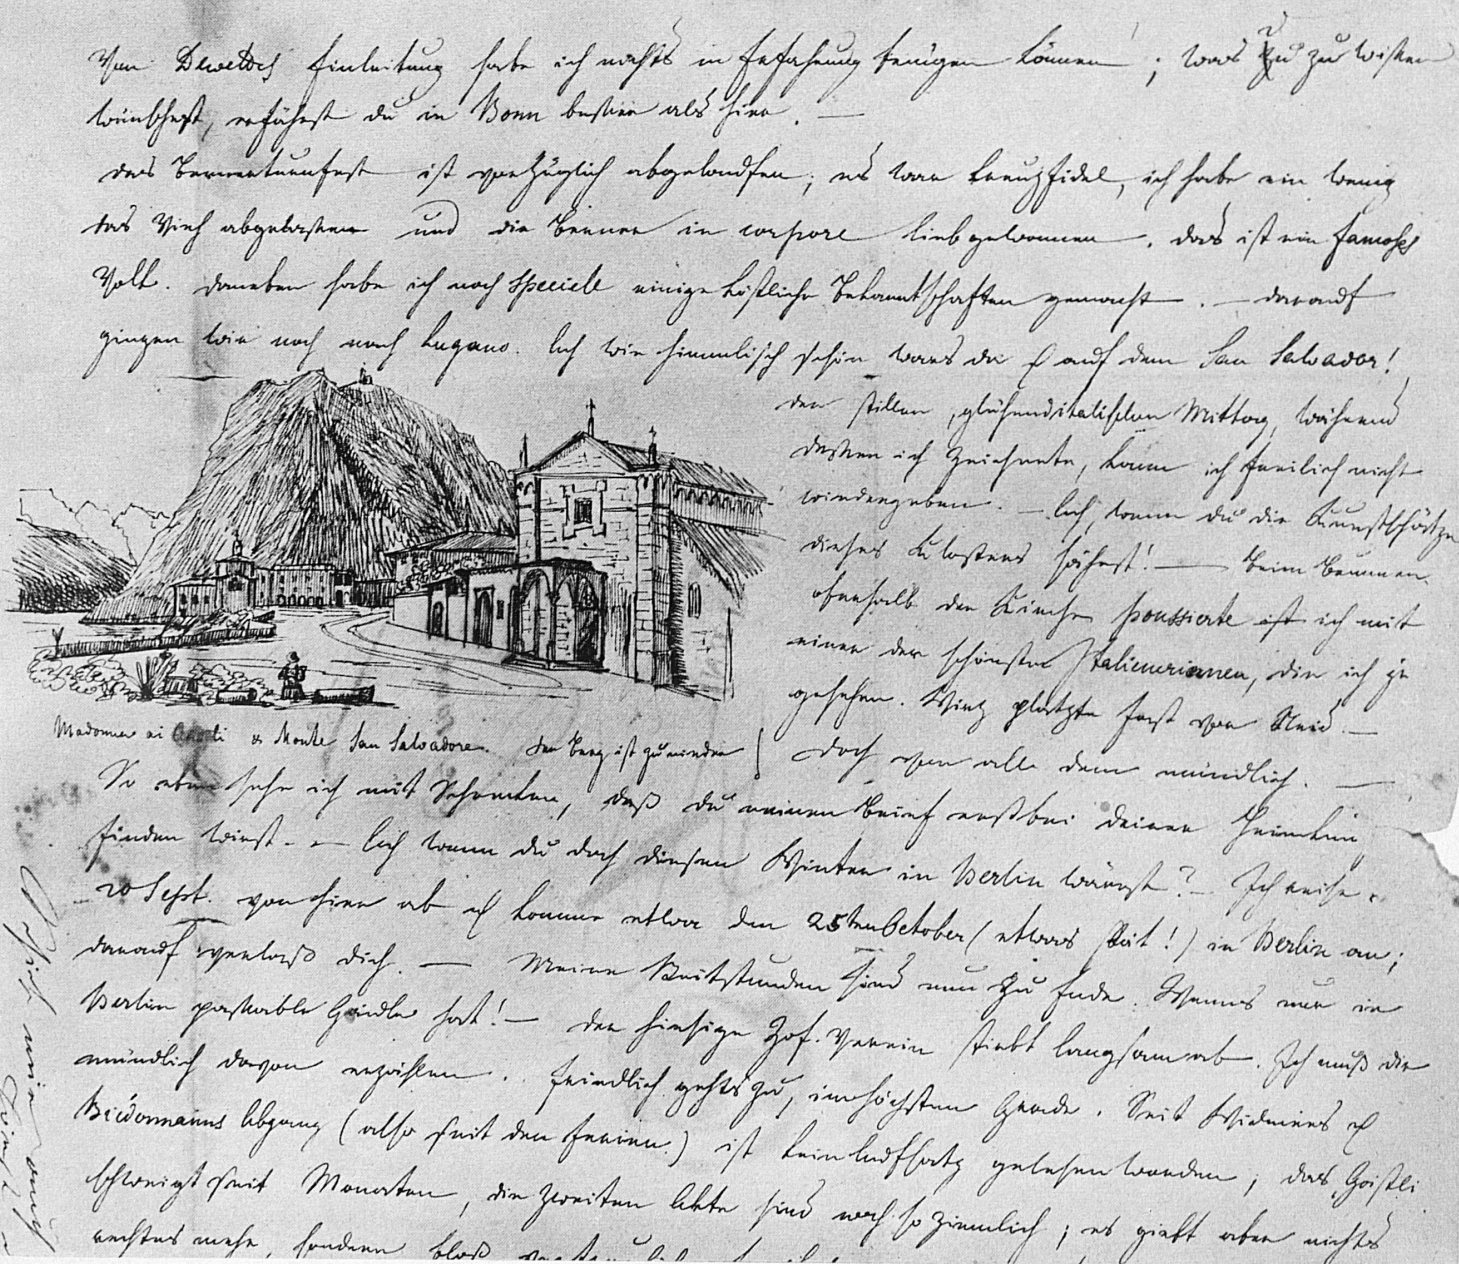 Von Dewettes Einleitung habe ich nichts in Erfahrung bringen können; was Du zu wissen
wünschest, erfährst du in Bonn besser als hier. —
das Bernerturnfest ist vorzüglich abgelaufen; es war kreuzfidel, ich habe ein wenig
das Vieh abgelassen und die Berner in corpore liebgewonnen. das ist ein famoses
Volk. daneben habe ich noch speciell einige köstliche Bekanntschaften gemacht. — darauf
gingen wir noch nach Lugano. Ach wie himmlisch schön wars da & auf dem San Salvador!
den stillen, glühenditalischen Mittag, während
dessen ich zeichnete, kann ich freilich nicht
wiedergeben. — Ach, wenn du die Kunstschätze
dieses Klosters sähest! — beim Brunnen
oberhalb der Kirche poussierte ich mit
einer der schönsten Italienerinnen, die ich je
gesehen. Wirz platzte fast vor Neid. —
Doch von alle dem mündlich. —
Madonna di & Monte San Salvadore. der Berg ist zu nieder
So eben sehe ich mit Schrecken, daß du meinen Brief erst bei deiner Heimkunft
finden wirst. — Ach wenn du doch diesen Winter in Berlin wärest? — Ich reise
20 Sept. von hier ab & komme etwa den 25sten October (etwas spät!) in Berlin an;
darauf verlaß dich. — Meine Reitstunden sind nun zu Ende. Wenns nur in
Berlin passable Gäule hat! — der hiesige Zof. Verein stirbt langsam ab. Ich muß dir
mündlich davon erzählen. friedlich gehts zu, im höchsten Grade. Seit Widmers &
Biedermanns Abgang (also seit den Ferien) ist kein Aufsatz gelesen worden; das
schweigt seit Monaten, die zweiten Akte sind noch so ziemlich; es giebt aber nichts
rechtes mehr, sondern bloß